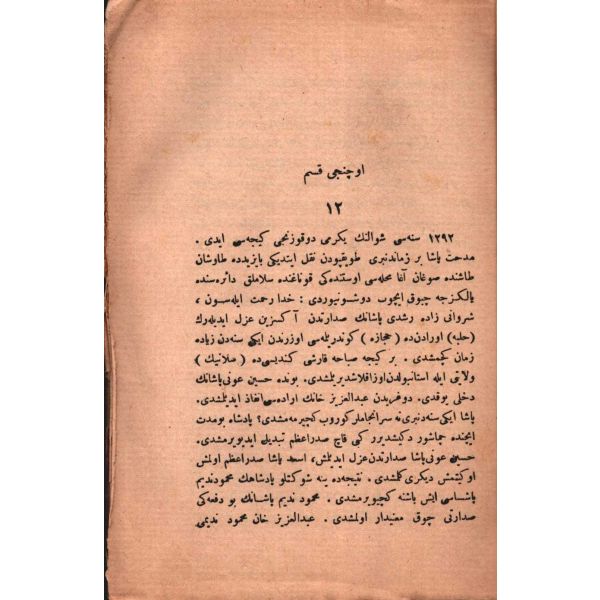 اوچنجی قسم
١٢
١٢٩٢ سنه‌سی شوالنك یكرمی دوقوزنجی كیجه‌سی ایدی .
مدحت پاشا بر زماندنبری طوپقپودن نقل ایتدیكی بایزیدده طاوشان
طاشنده صوغان آغا محله‌سی اوستنده‌كی قوناغنده سلاملق دائره‌سنده
یالكزجه چبوق ایچوب دوشونیوردی : خدا رحمت ایله‌سون ،
شروانی زاده رشدی پاشانك صدارتدن آكسزین عزل ایدیله‌رك
(حلبه) اورادن‌ده (حجازه) كوندریله‌سی اوزرندن ایكی سنه‌دن زیاده
زمان كچمشدی . بر كیجه صباحه قارشی كندیسی‌ده (سلانیك)
ولایتی ایله استانبولدن اوزاقلاشدیرلمشدی . بونده حسین عونی پاشانك
دخلی یوقدی . دوغریدن عبدالعزیز خانك اراده‌سی انفاذ ایدلمشدی.
پاشا ایكی سنه‌دنبری نه سرانجاملر كوروب كچیرمه‌مشدی؟ پادشاه بو مدت
ایچنده چماشور دكیشدیرر كبی قاچ صدراعظم تبدیل ایدیویرمشدی.
حسین عونی پاشا صدارتدن عزل ایدیلمش، اسعد پاشا صدراعظم اولمش
او كیتمش دیكری كلمشدی . نتیجه‌ده ینه شوكتلو پادشاهك محمود ندیم
پاشاسی ایش باشنه كچیویرمشدی . محمود ندیم پاشانك بو دفعه‌كی
صدارتی چوق معنیدار اولمشدی . عبدالعزیز خان محمود ندیمی